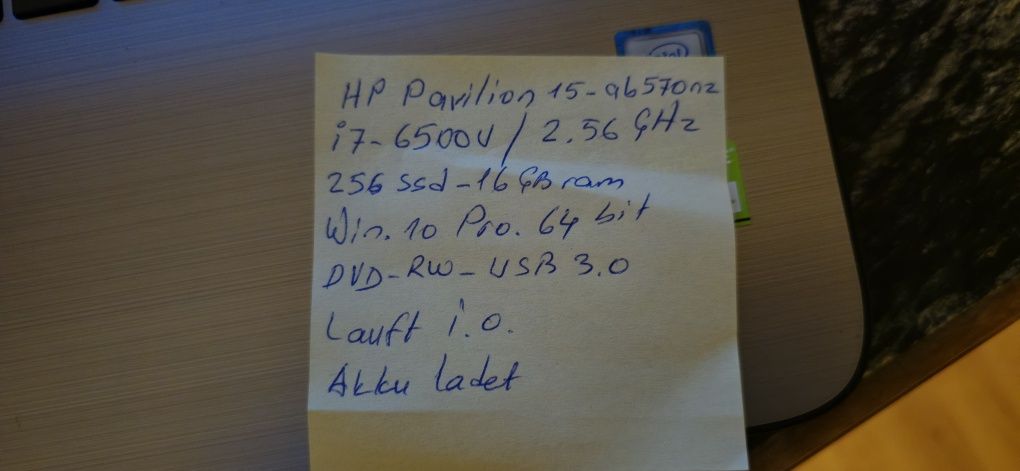 HP Pavilion 15-ab570nz
i7-6500U / 2.56 GHz
256 ssd - 16 GB ram
Win. 10 Pro. 64 bit
DVD-RW - USB 3.0
Lauft i.o.
Akku ladet